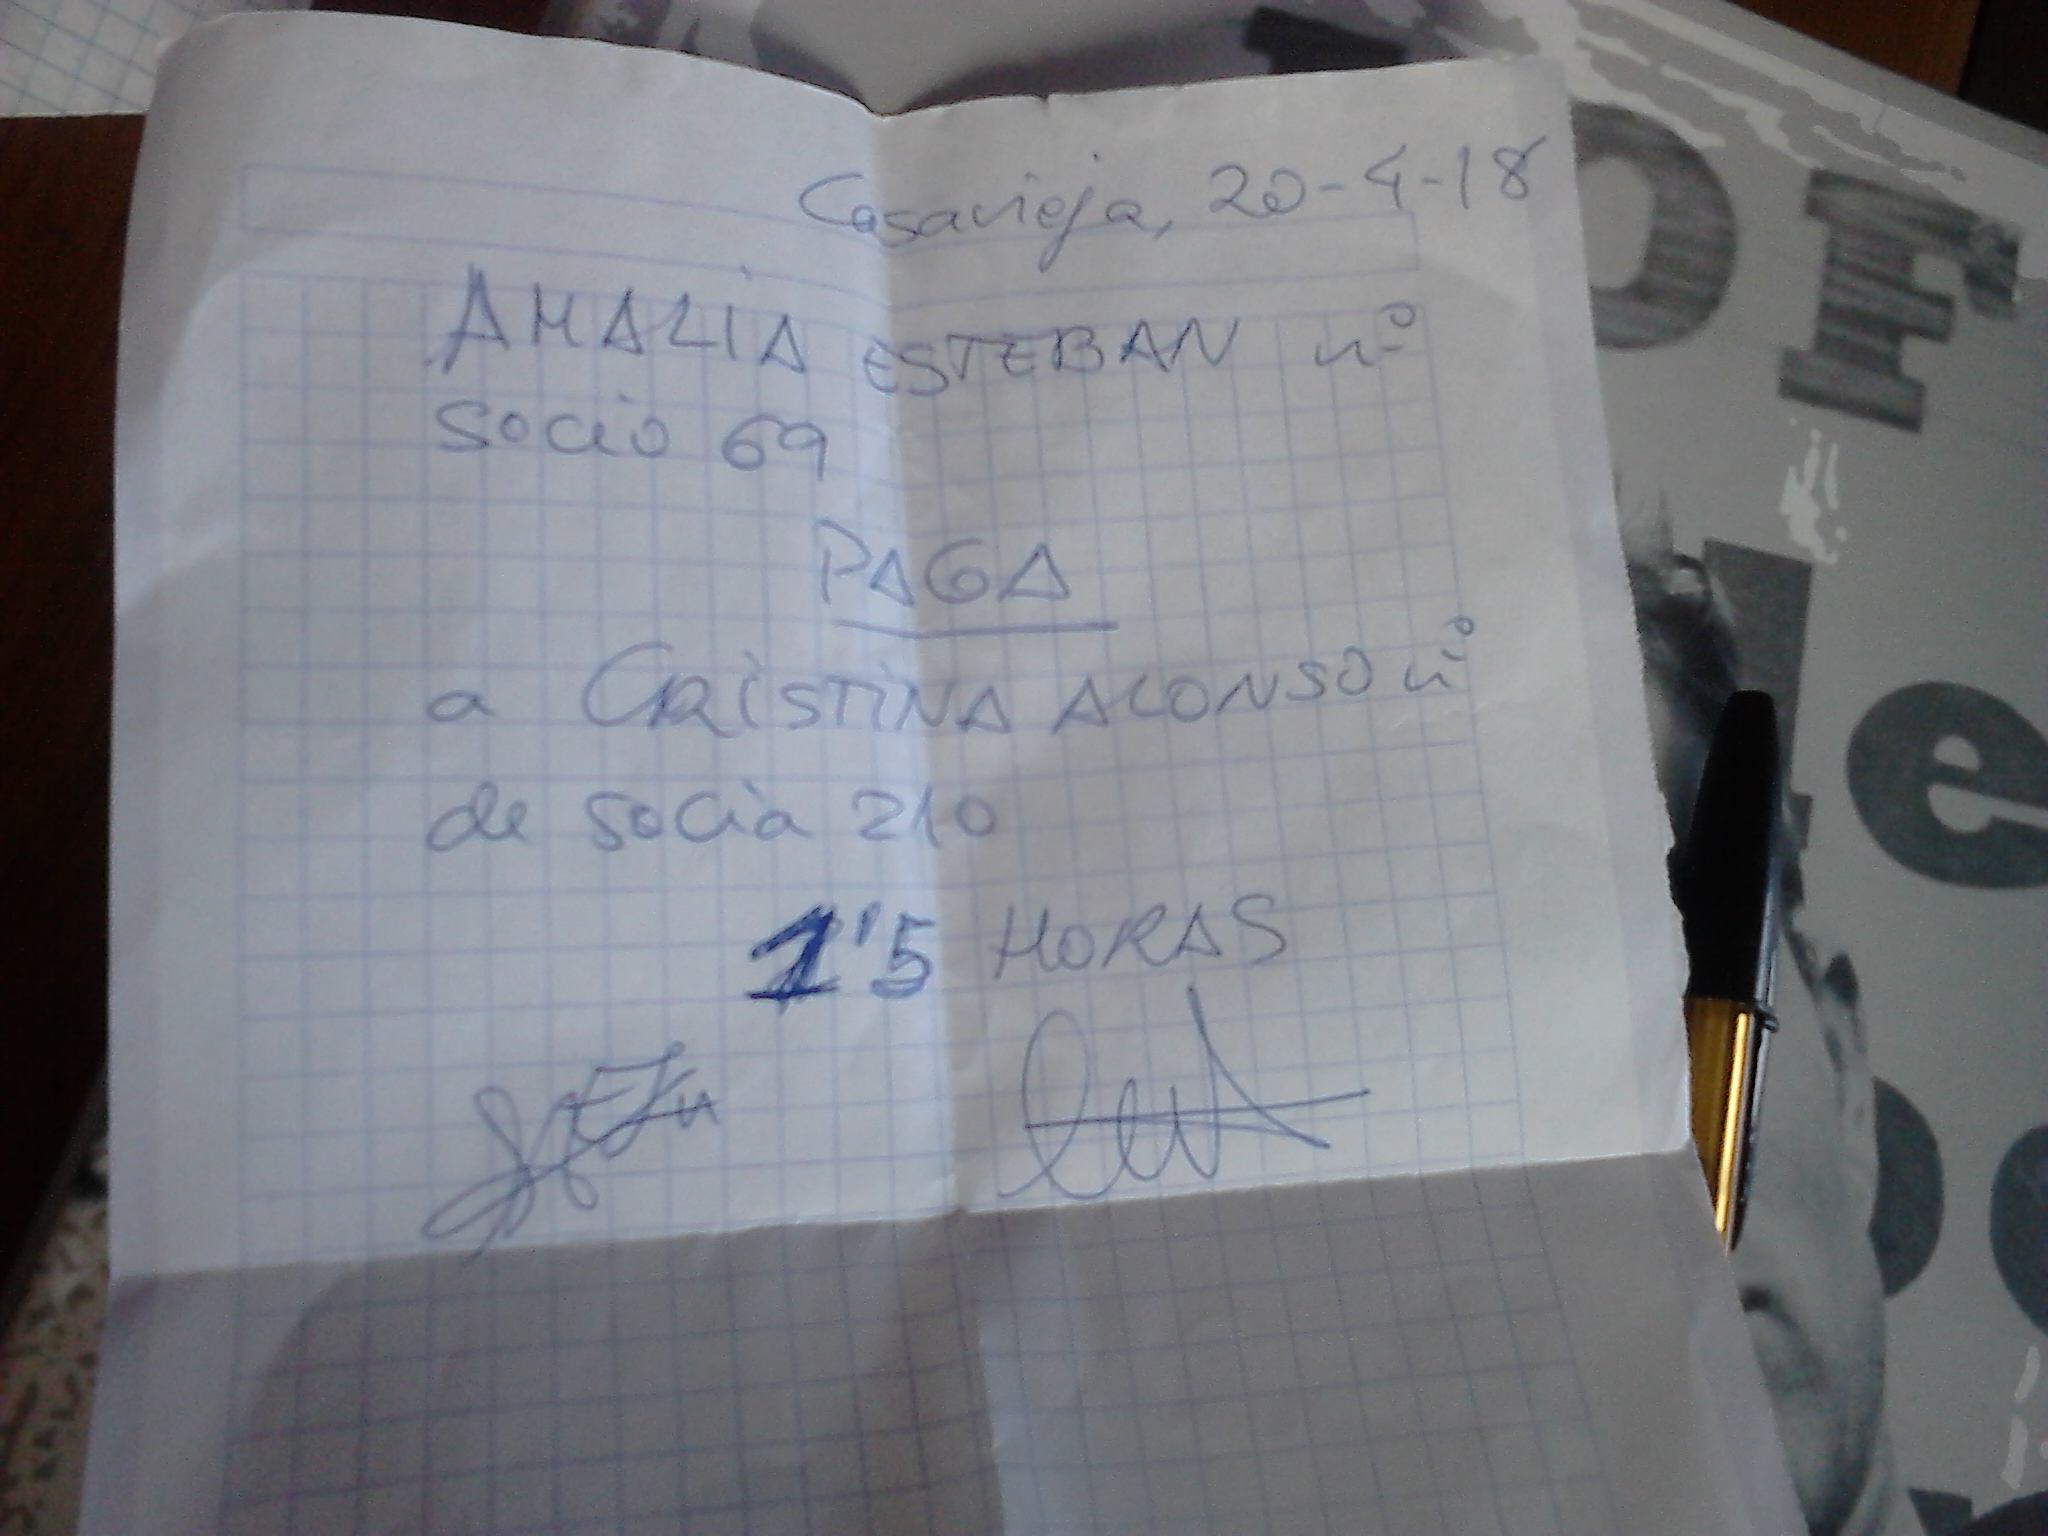 Casavieja, 20-4-18
AMALIA ESTEBAN nº
socio 69
PAGA
a CRISTINA ALONSO nº
de socia 210
1'5 HORAS
OF
le